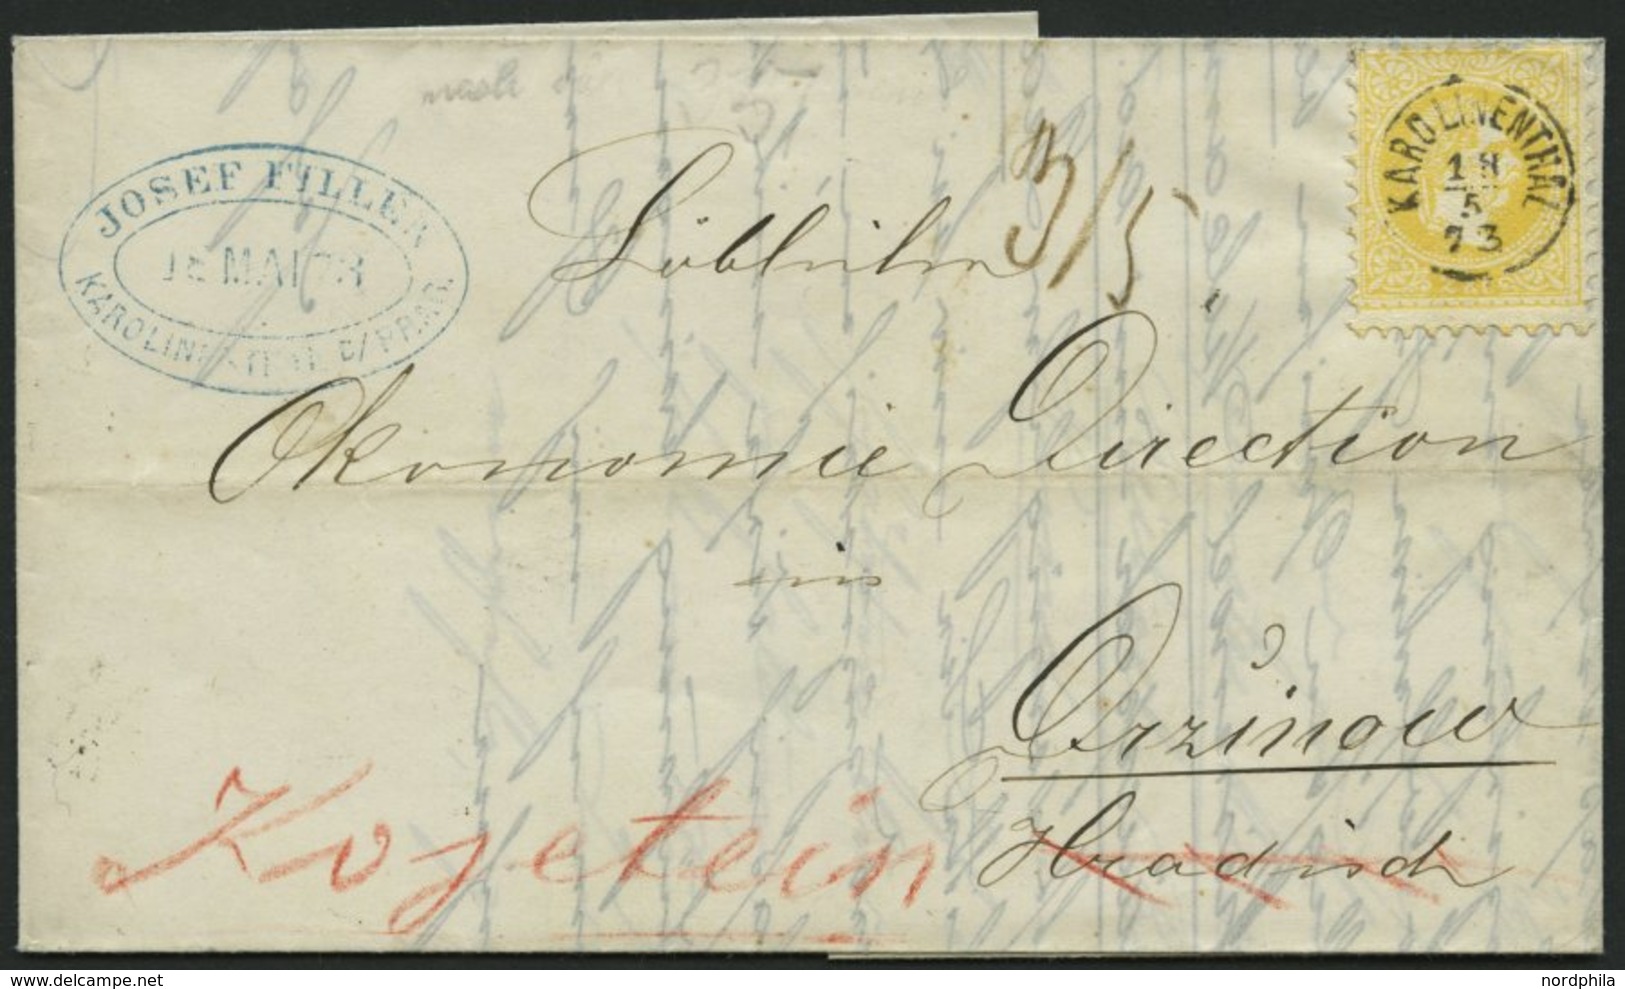 JOSEF FILLER
MAI 73
KAROLINENTHAL B/PRAG.
KAROLINENTHAL
18
5
73
3/5
Löbliche
Ökonomie Direction
in
Orzinow
Hradisch
Kojetein
nordphila